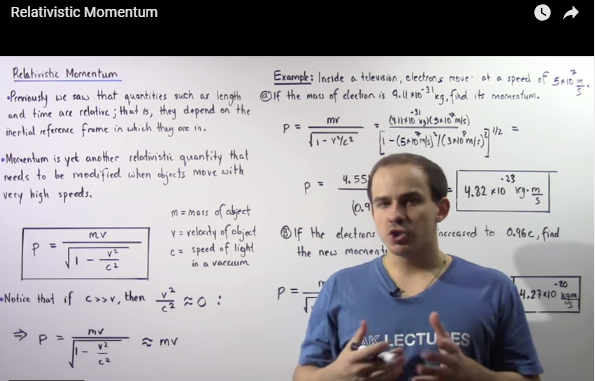 Relativistic Momentum
Relativistic Momentum
• Previously we saw that quantities such as length
and time are relative; that is, they depend on the
inertial reference frame in which they are in.
• Momentum is yet another relativistic quantity that
needs to be modified when objects move with
very high speeds.
m = mass of object
v = velocity of object
c = speed of light
in a vaccuum
P = mv / √(1 - v²/c²)
• Notice that if c >> v, then v²/c² ≈ 0 :
⇒ P = mv / √(1 - v²/c²) ≈ mv
Example: Inside a television, electrons move at a speed of 5×10⁷ m/s.
Ⓐ If the mass of electron is 9.11 ×10⁻³¹ kg, find its momentum.
P = mv / √(1 - v²/c²) = (9.11×10⁻³¹ kg)(5×10⁷ m/s) / [1 - (5×10⁷ m/s)²/(3×10⁸ m/s)²]^1/2 =
P = 4.55
(0.9
= 4.82 ×10⁻²³ kg·m/s
Ⓑ If the electrons increased to 0.96c, find
the new
P =
4.27×10⁻²⁰ kgm/s
AK LECTURES